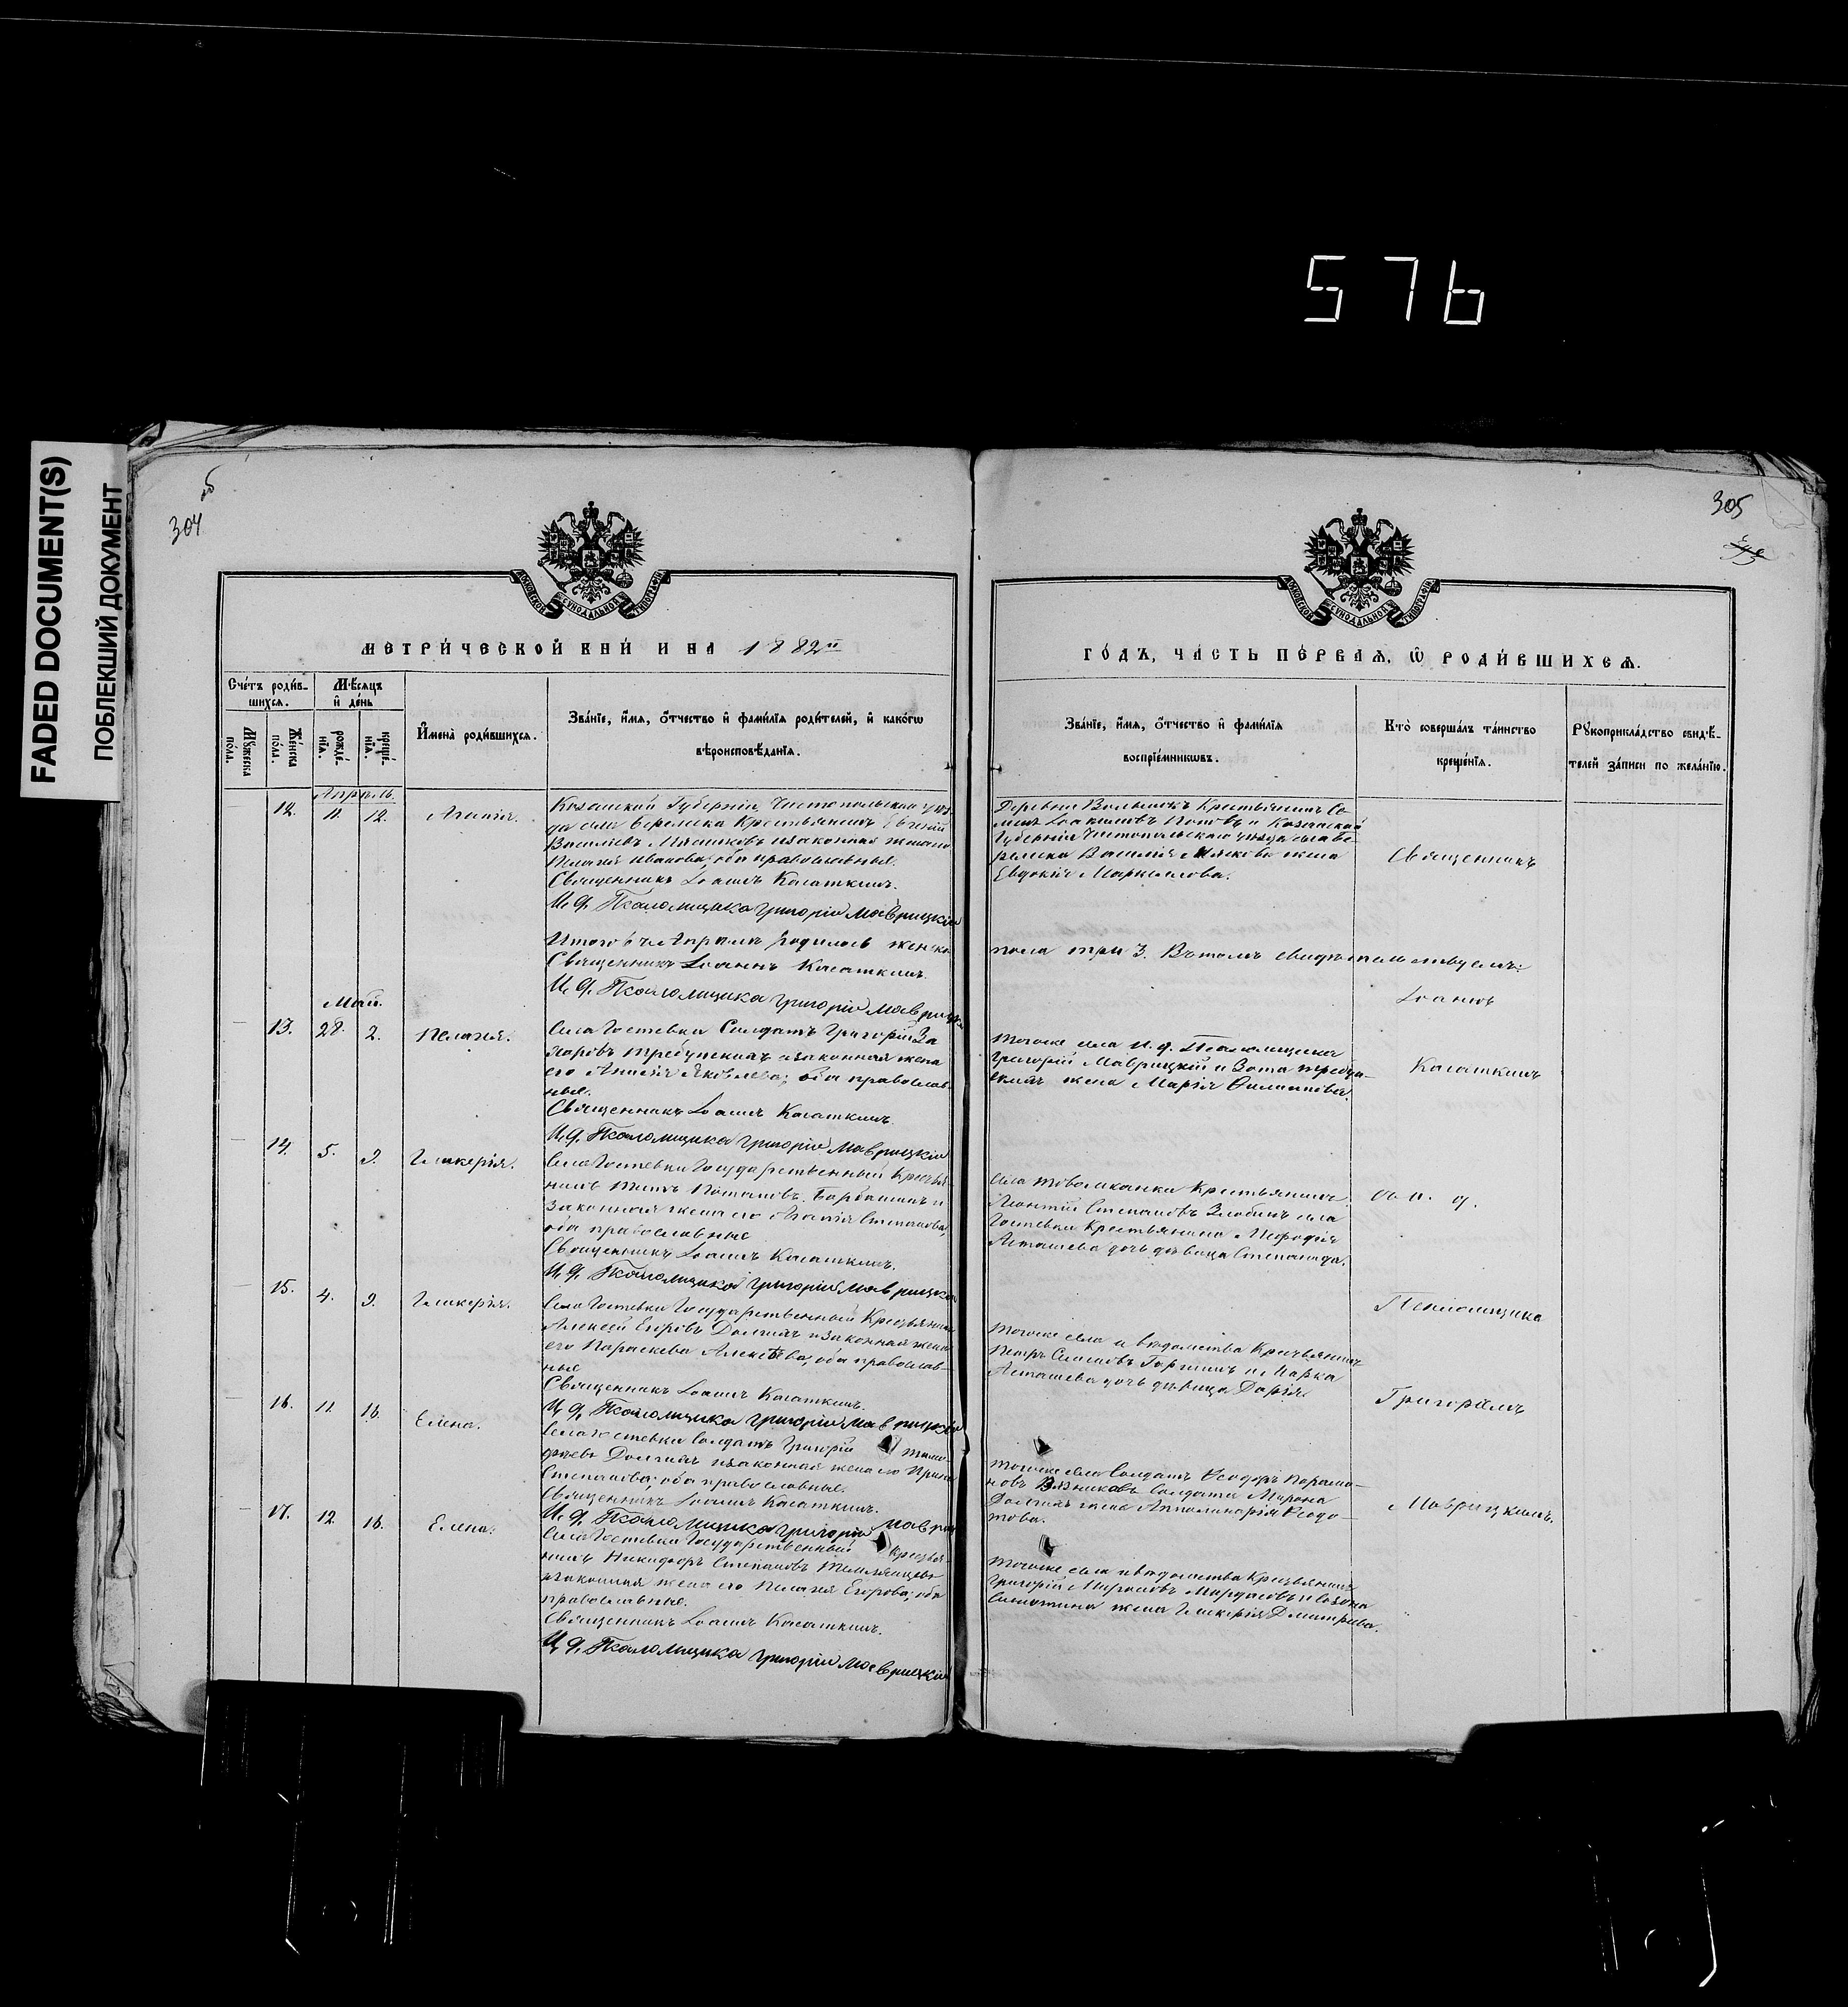 576
FADED DOCUMENT(S)
ПОБЛЕКШИЙ ДОКУМЕНТ
304
об
305
МОСКОВСКОЙ СѴНОДАЛЬНОЙ ТИПОГРАФІИ
МЕТРИ́ЧЕСКОЙ КНИ́ И НА 1882й
Сче́тъ роди́в-
шихсѧ.
Мѣ́сѧцъ
и҆ де́нь
Мꙋ́жеска по́ла.
Же́нска по́ла.
рожде́-нїѧ.
креще́-нїѧ.
И҆мена̀ роди́вшихсѧ.
Зва́нїе, и҆́мѧ, ѻ҆́тчество и҆ фами́лїѧ роди́телей, и҆ како́гѡ
вѣроисповѣ́данїѧ.
Апрѣль
12. 11. 12. Агапія.
Казанской Губерніи Чистопольскаго уѣз-
да села Крестьянинъ Евгеній
Васильевъ и законная жена его
Пелагія Иванова, оба православные.
Священникъ Іоаннъ Касаткинъ.
И. д. Псаломщика Григорій Маврицкій
Итого въ Апрѣлѣ родилось женска
Священникъ Іоаннъ Касаткинъ.
И. д. Псаломщика Григорій Маврицкій
Май.
13. 28. 2. Пелагія.
Села Гостевки Солдатъ Григорій За
харовъ Требунскихъ и законная жена
его Анисія Яковлева; оба православ-
ные.
Священникъ Іоаннъ Касаткинъ.
И. д. Псаломщика Григорій Маврицкій
14. 5. 9. Гликерія.
Села Гостевки Государственный Крестья-
нинъ Титъ Потаповъ Барбашинъ и
законная жена его Агапія Степанова,
оба православные
Священникъ Іоаннъ Касаткинъ.
И. д. Псаломщика Григорій Маврицкій
15. 4. 9. Гликерія.
Села Гостевки Государственный Крестьянинъ
Алексѣй Егоровъ Долгихъ и законная жена
его Параскева Алексѣева, оба православ-
ные
Священникъ Іоаннъ Касаткинъ.
И. д. Псаломщика Григорій Маврицкій
16. 11. 16. Елена.
Села Гостевки Солдатъ Григорій Тимо-
фѣевъ Долгихъ и законная жена его Ирина
Степанова; оба православные.
Священникъ Іоаннъ Касаткинъ.
И. д. Псаломщика Григорій Маврицкій
17. 12. 16. Елена.
Села Гостевки Государственный Крестья-
нинъ Никифоръ Степановъ
и законная жена его Пелагія Егорова; оба
православные.
Священникъ Іоаннъ Касаткинъ.
И. д. Псаломщика Григорій Маврицкій
МОСКОВСКОЙ СѴНОДАЛЬНОЙ ТИПОГРАФІИ
ГО́ДЪ, ЧА́СТЬ ПЕ́РВАѦ, Ѡ҆ РОДИ́ВШИХСѦ.
Зва́нїе, и҆́мѧ, ѻ҆́тчество и҆ фами́лїѧ
воспрїе́мникѡвъ.
Кто̀ соверша́лъ та́инство
креще́нїѧ.
Рꙋкоприкла́дство свидѣ́-
телей за́писи по жела́нїю.
Деревни Крестьянинъ Се-
Іоакимовъ и Казанской
Губерніи Чистопольскаго уѣзда села
Василія жена
Евдокія
пола три 3. Въ томъ свидѣтельствуемъ:
Тогоже села И. д. Псаломщика
Григорій Маврицкій и Зота Требун-
скихъ жена Марія Филипова.
Села Товолжанки Крестьянинъ
Леонтій Степановъ Злобинъ села
Гостевки Крестьянина Меѳодія
Асташева дочь дѣвица Степанида.
Тогоже села и вѣдомства Крестьянинъ
Петръ Семеновъ и Марка
Асташева дочь дѣвица Дарія.
Тогоже села Солдатъ Ѳеодоръ Парамо-
новъ Солдата Мирона
Долгихъ жена Апполинарія Ѳедо-
това.
Тогоже села и вѣдомства Крестьянинъ
Григорій Мироновъ и Созона
жена Гликерія Дмитріева.
Священникъ
Іоаннъ
Касаткинъ
съ и. д.
Псаломщика
Григоріемъ
Маврицкимъ.